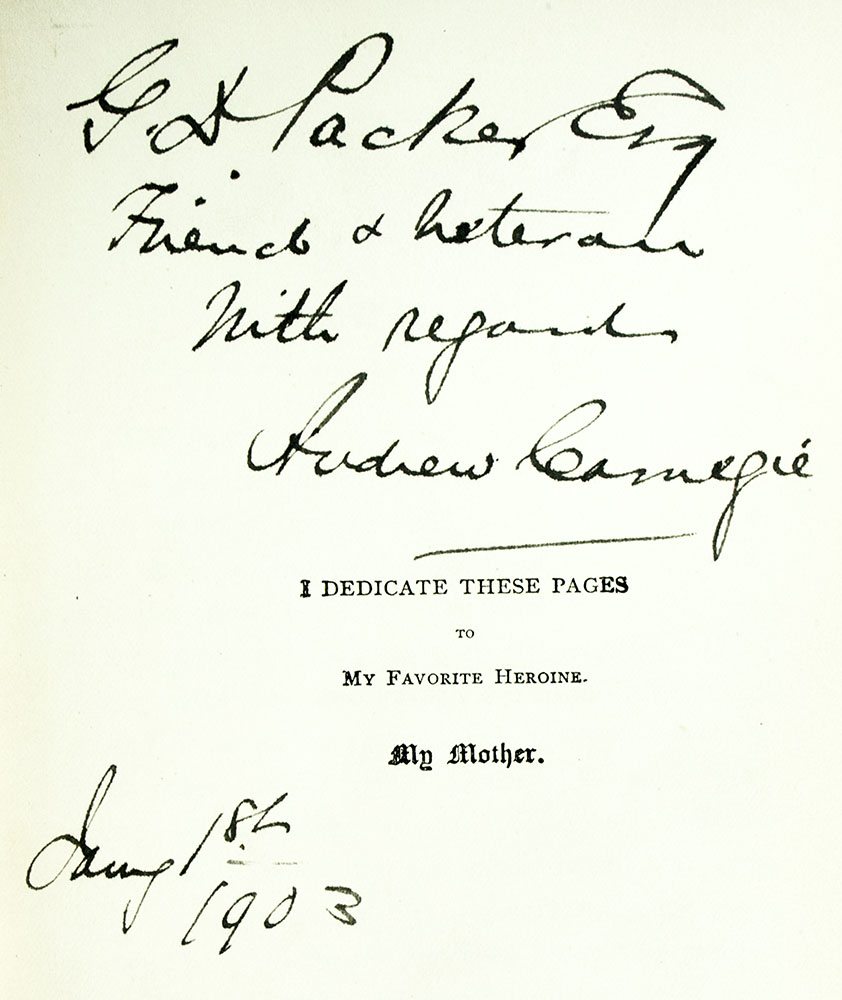 G. D Packer Esq
Friend & veteran
With regards
Andrew Carnegie
I DEDICATE THESE PAGES
TO
MY FAVORITE HEROINE.
My Mother.
Jany 1st
1903